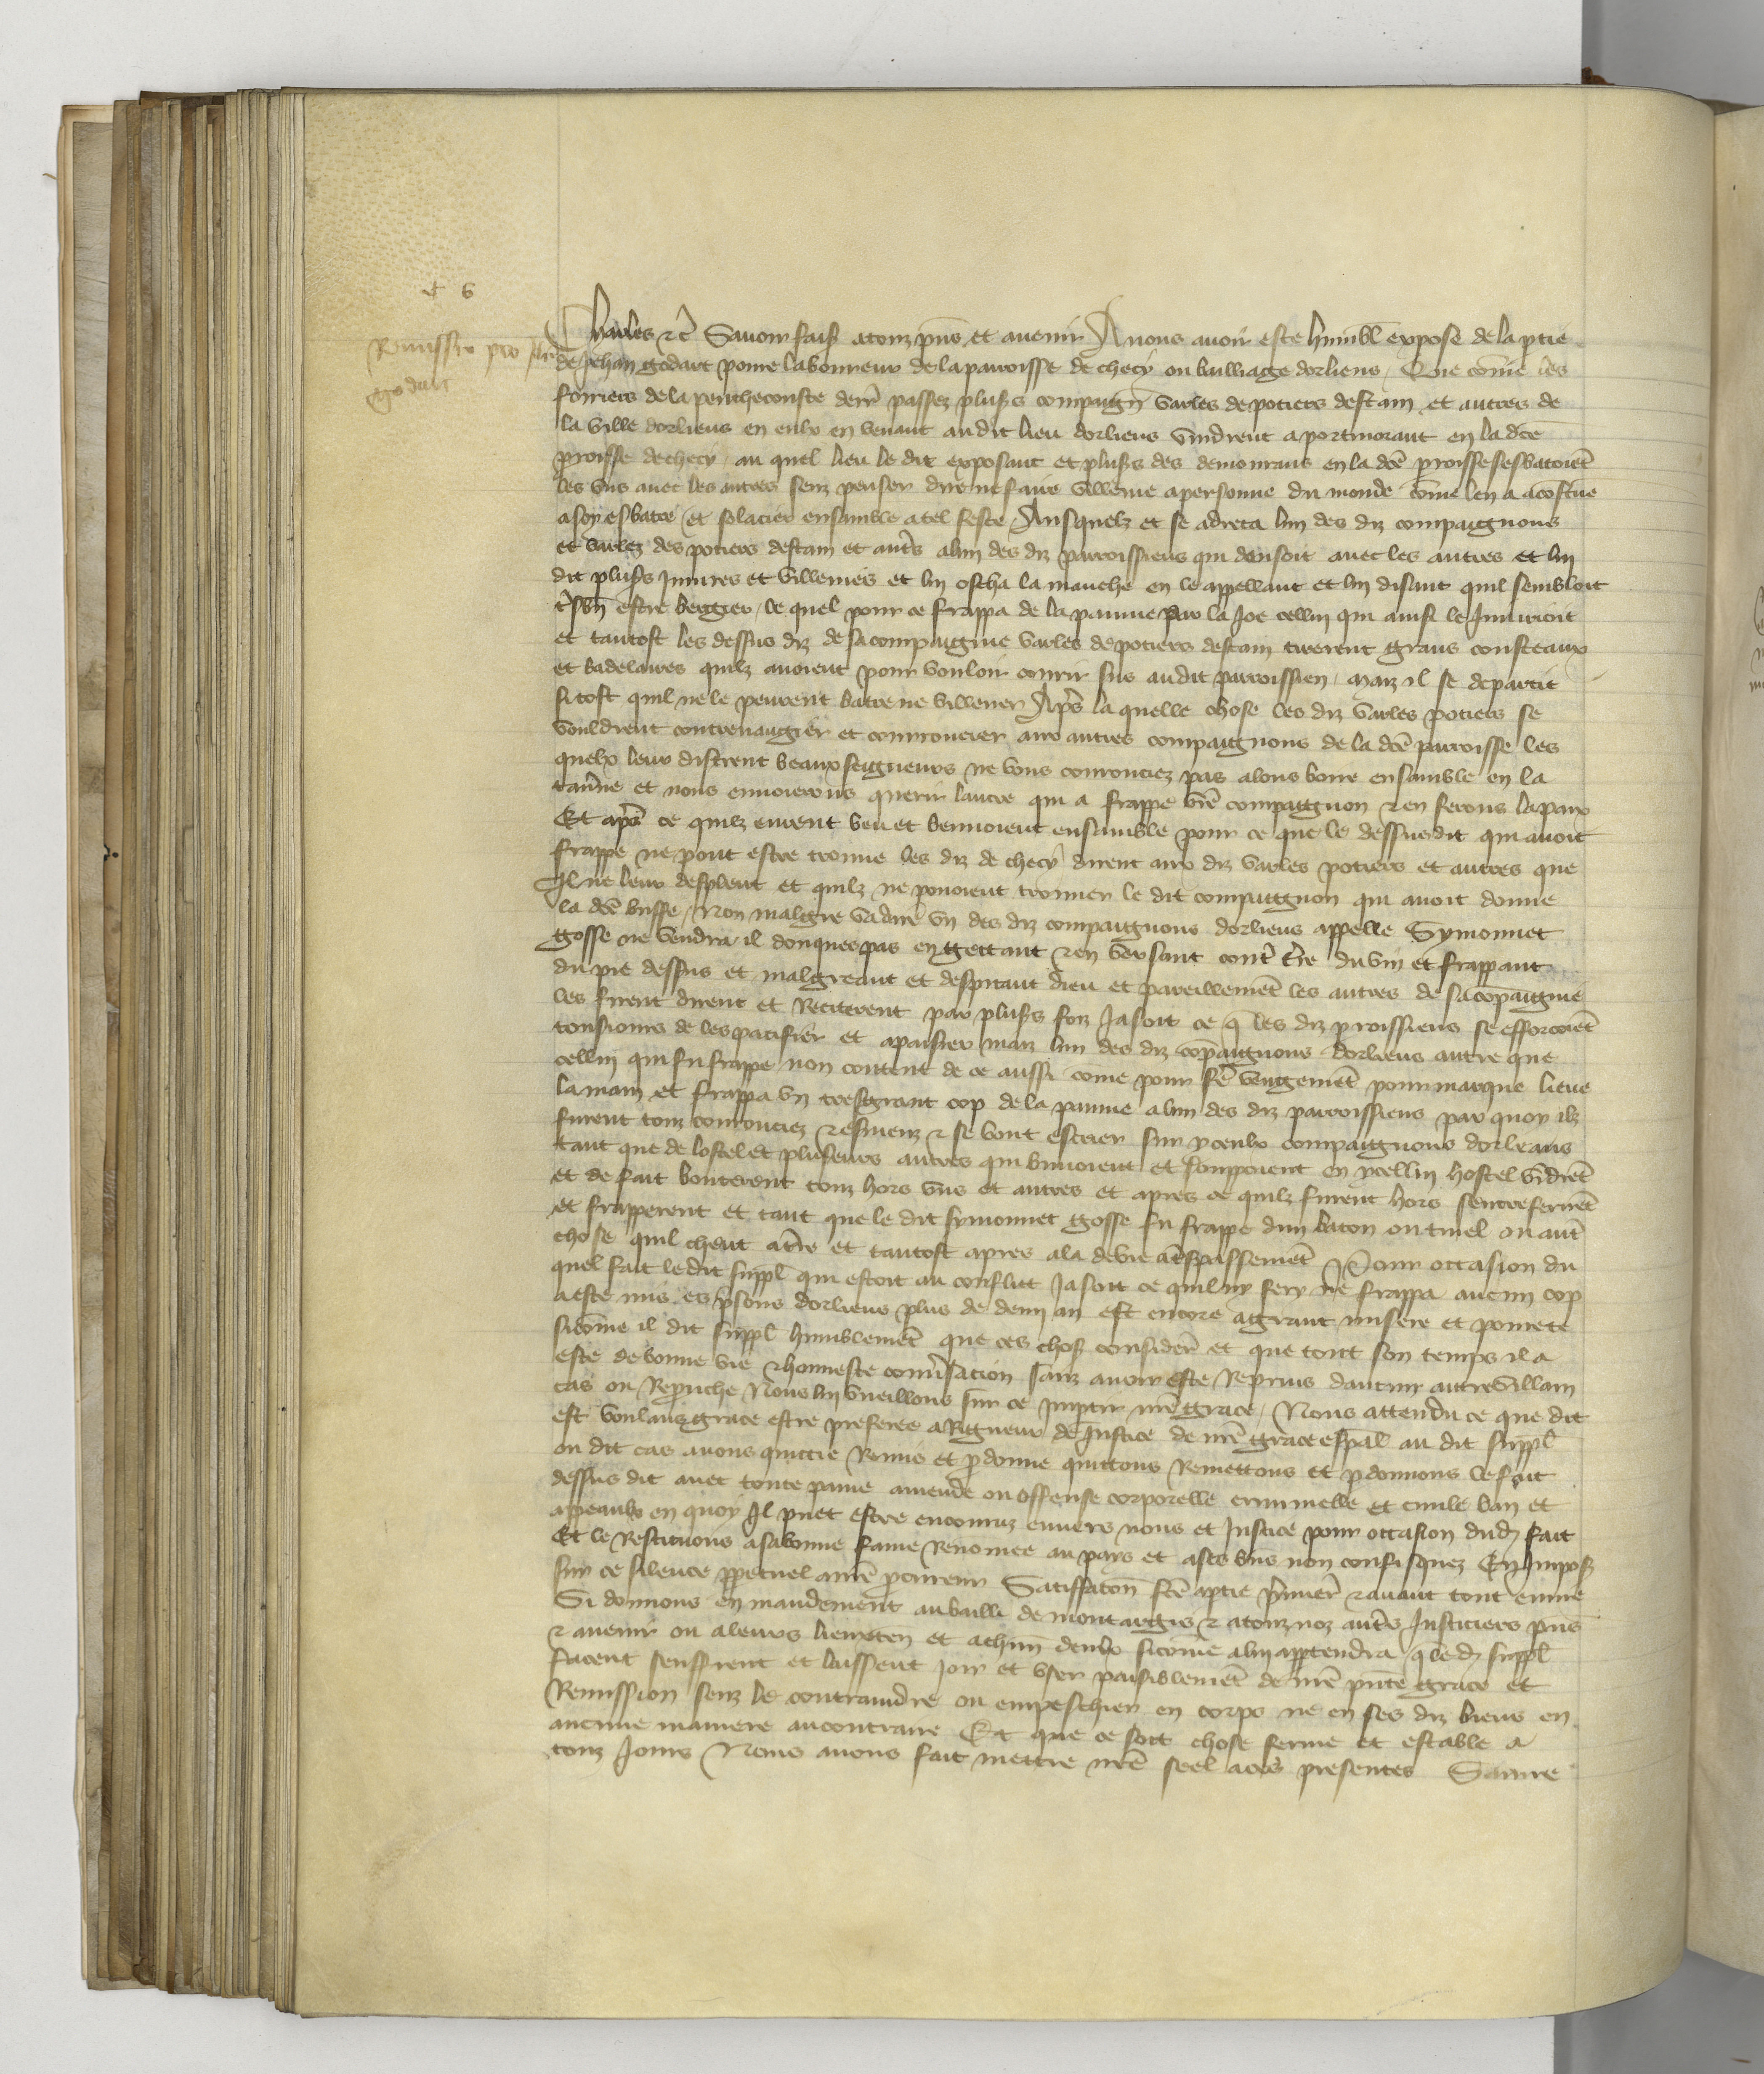 c 6
Remissio pro Jeh
godart
Charles etc Savoir fais atouz pñs et avenir A nous avoir este humbl expose de la ptie
de Jehan godart povre laboureur de la parroisse de checy ou bailliage dorliens / Que cõme les
foiriers de la pentheconste derr passez plusrs compaign varles de potiers destain et autres de
la ville dorliens en eulx en venant au dit lieu dorliens vindrent a portmorant en la dce
proisse de checy / au quel lieu le dit exposant et plusrs des demourans en la dce proisse sesbatoiẽt
les uns avec les autres senz penser dire ne faire villenie a personne du monde cõme len a acostume
a soy esbatre et solacier ensamble a tel feste / Ausquelz et se adreca lun des diz compaignons
et varlez des potiers destain et autrs a lun des diz parroissiens qui dansoit avec les autres et lui
dit plusrs Injures et villenies et lui oscha la manche en le appellant et lui disant quil sembloit
tresbn estre bergier / le quel pour ce frappa de la paume par la Joe cellui qui ainsi le Injurioit
et tantost les dessus diz de sa compaignie varles de potiers destain tirerent grans cousteaux
et badelaires quilz avoient pour vouloir courir sus audit parroissien / maiz il se departit
si tost quil ne le peurent batre ne villener Aprs la quelle chose les diz varles potiers se
vouldrent contrevangier et courroucier aux autres compaignons de la dce parroisse les
quelx leur distrent beaux seigneurs ne vous corouciez pas alons boire ensamble en la
taverne et nous envoierons querir lautre qui a frappe vre compaignon et en ferons la paix
Et aprs ce quilz eurent beu et bevoient ensamble pour ce que le dessusdit qui avoit
frappe ne pout estre trouve les diz de checy dirent aux diz varles potiers et autres que
Il ne leur despleut et quilz ne povoient trouver le dit compaignon qui avoit donne
la dce buffe / Non malgre va dire un des diz compaignons dorliens appelle Symonnet
gosse ne vendra il donques pas en gettant et en versant contr trre du vin et frappant
du pie dessus et malgreant et despitant dieu et pareillemẽt les autres de sa cõpaignie
les firent dirent et Reciterent par plusrs foiz Jasoit ce q les diz proissiens se efforcoiẽt
tousiours de les pacifier et apaisier maiz lun des diz cõpaignons dorliens autre que
cellui qui fu frappe non content de ce aussi cõme pour fe vengemẽt pour marque lieve
la main et frappa un tresgrant cop de la paume a lun des diz parroissiens par quoy ilz
furent touz courouciez et esmeuz et se vont escrier sur yceulx compaignons dorleans
tant que de lostel et pluseurs autres qui buvoient et souppoient en ycellui hostel vidrẽt
et de fait bouterent touz hors uns et autres et apres ce quilz furent hors sentreferirẽt
et frapperent et tant que le dit symonnet gosse fu frappe dun baton ou tinel ou autr
chose quil cheut a trre et tantost apres ala de vie a trespassemẽt Pour occasion du
quel fait le dit suppl qui estoit au conflict Jasoit ce quil ny fery ne frappa aucun cop
a este mis es prisons dorliens plus de demi an est encore a grant misere et povrete
si cõme il dit suppl humblemẽt que ces chos considerr et que tout son temps il a
este de bonne vie et honneste conversacion sanz avoir este Reprins daucun autre villain
cas ou Reprouche Nous lui vueillons sur ce Impartir nre grace / Nous attendu ce que dit
est voulans grace estre preferee a Rigueur de Justice de nre grace espal au dit suppl
ou dit cas avons quictie Remis et pdonne quictons Remettons et pdonnons le fait
dessus dit avec toute paine amende ou offense corporelle criminelle et civile ban et
apeaulx en quoy Il puet estre encouruz envers nous et Justice pour occasion dud fait
Et le Restituons a sa bonne fame Renomee au pays et a ses bns non confisquez En Impos
sur ce silence ppetuel a nre procureur Satisfacon fce a ptie prmierr et avant tout euvre
Si donnons en mandement au bailli de montargis et a touz noz autrs Justiciers pñs
et avenir ou a leurs lieuxten et a chun deulx si cõme a lui appartendra q le d suppl
facent seuffrent et laissent joir et user paisiblemẽt de nre pñte grace et
Remission senz le contraindre ou empeschier en corps ne en ses diz biens en
aucune maniere au contraire Et que ce soit chose ferme et estable a
touz Jours Nous avons fait mettre nre seel a ces presentes Sauve